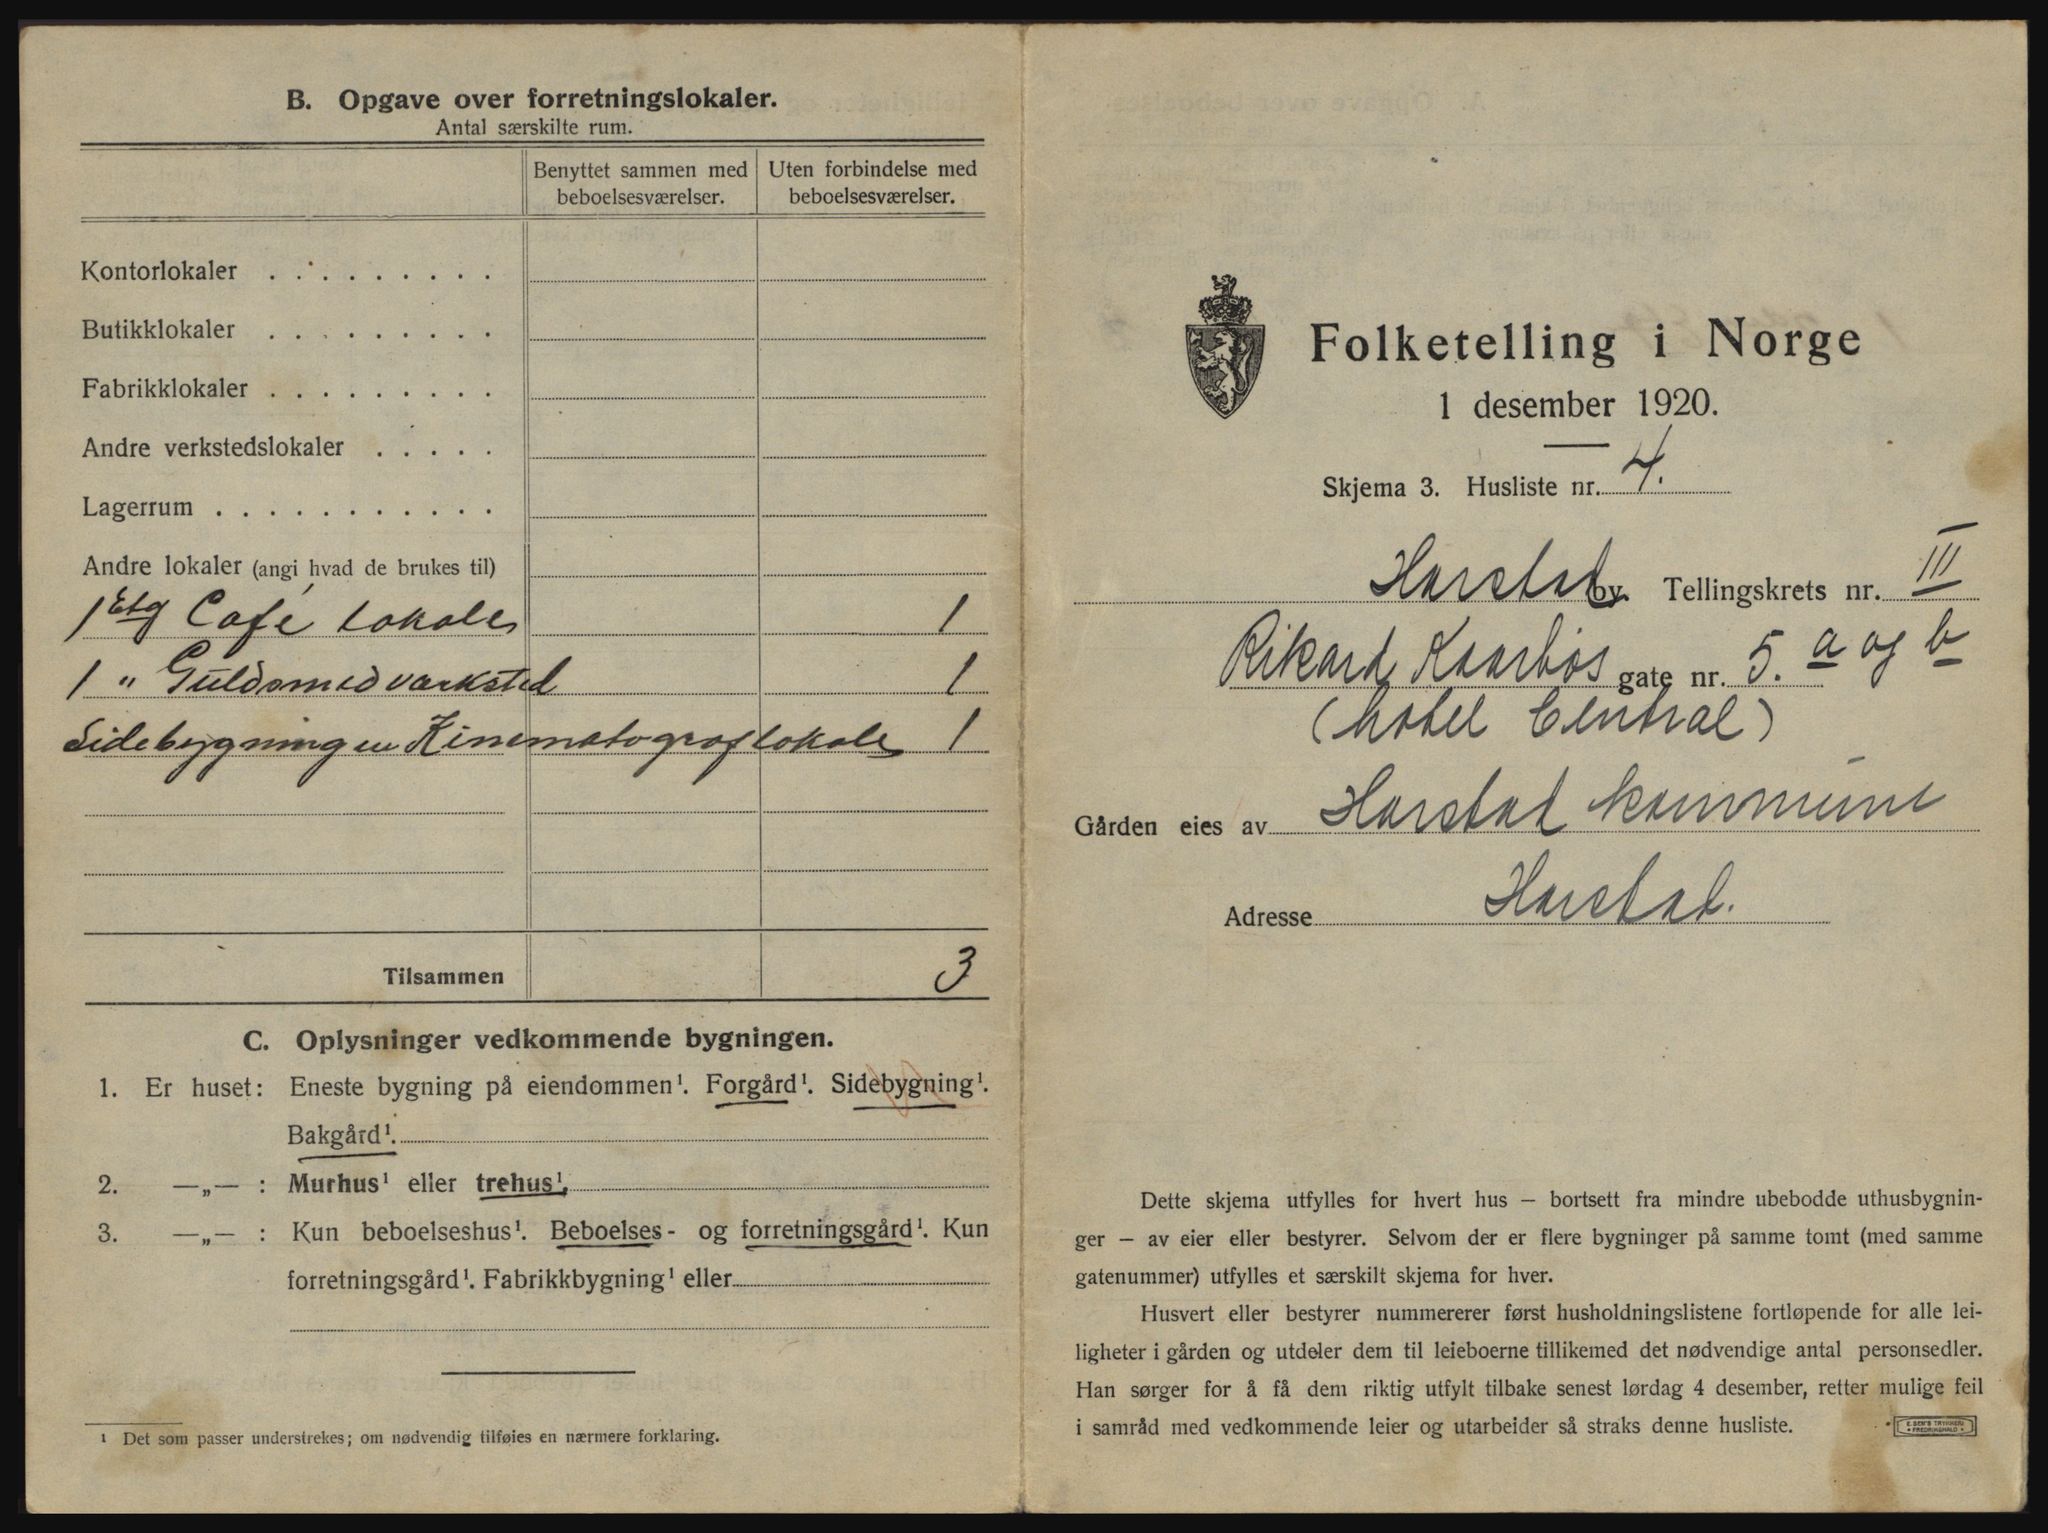 B. Opgave over forretningslokaler.
Antal særskilte rum.
Benyttet sammen med beboelsesværelser.
Uten forbindelse med beboelsesværelser.
Kontorlokaler . . . . . . . . .
Butikklokaler . . . . . . . . .
Fabrikklokaler . . . . . . . . .
Andre verkstedslokaler . . . . .
Lagerrum . . . . . . . . . . .
Andre lokaler (angi hvad de brukes til)
1 Etg Café lokale 1
1 " Guldsmedværksted 1
Sidebygningen Kinematograflokale 1
Tilsammen 3
C. Oplysninger vedkommende bygningen.
1. Er huset: Eneste bygning på eiendommen¹. Forgård¹. Sidebygning¹.
Bakgård¹.
2. —„— : Murhus¹ eller trehus¹.
3. —„— : Kun beboelseshus¹. Beboelses- og forretningsgård¹. Kun
forretningsgård¹. Fabrikkbygning¹ eller
¹ Det som passer understrekes; om nødvendig tilføies en nærmere forklaring.
Folketelling i Norge
1 desember 1920.
Skjema 3. Husliste nr. 4.
Harstad by. Tellingskrets nr. III
Rikard Kaarbøs gate nr. 5. a og b
(Hotel Central)
Gården eies av Harstad kommune
Adresse Harstad.
Dette skjema utfylles for hvert hus — bortsett fra mindre ubebodde uthusbygnin-
ger — av eier eller bestyrer. Selvom der er flere bygninger på samme tomt (med samme
gatenummer) utfylles et særskilt skjema for hver.
Husvert eller bestyrer nummererer først husholdningslistene fortløpende for alle lei-
ligheter i gården og utdeler dem til leieboerne tillikemed det nødvendige antal personsedler.
Han sørger for å få dem riktig utfylt tilbake senest lørdag 4 desember, retter mulige feil
i samråd med vedkommende leier og utarbeider så straks denne husliste.
E. SEM'S TRYKKERI
FREDRIKSHALD